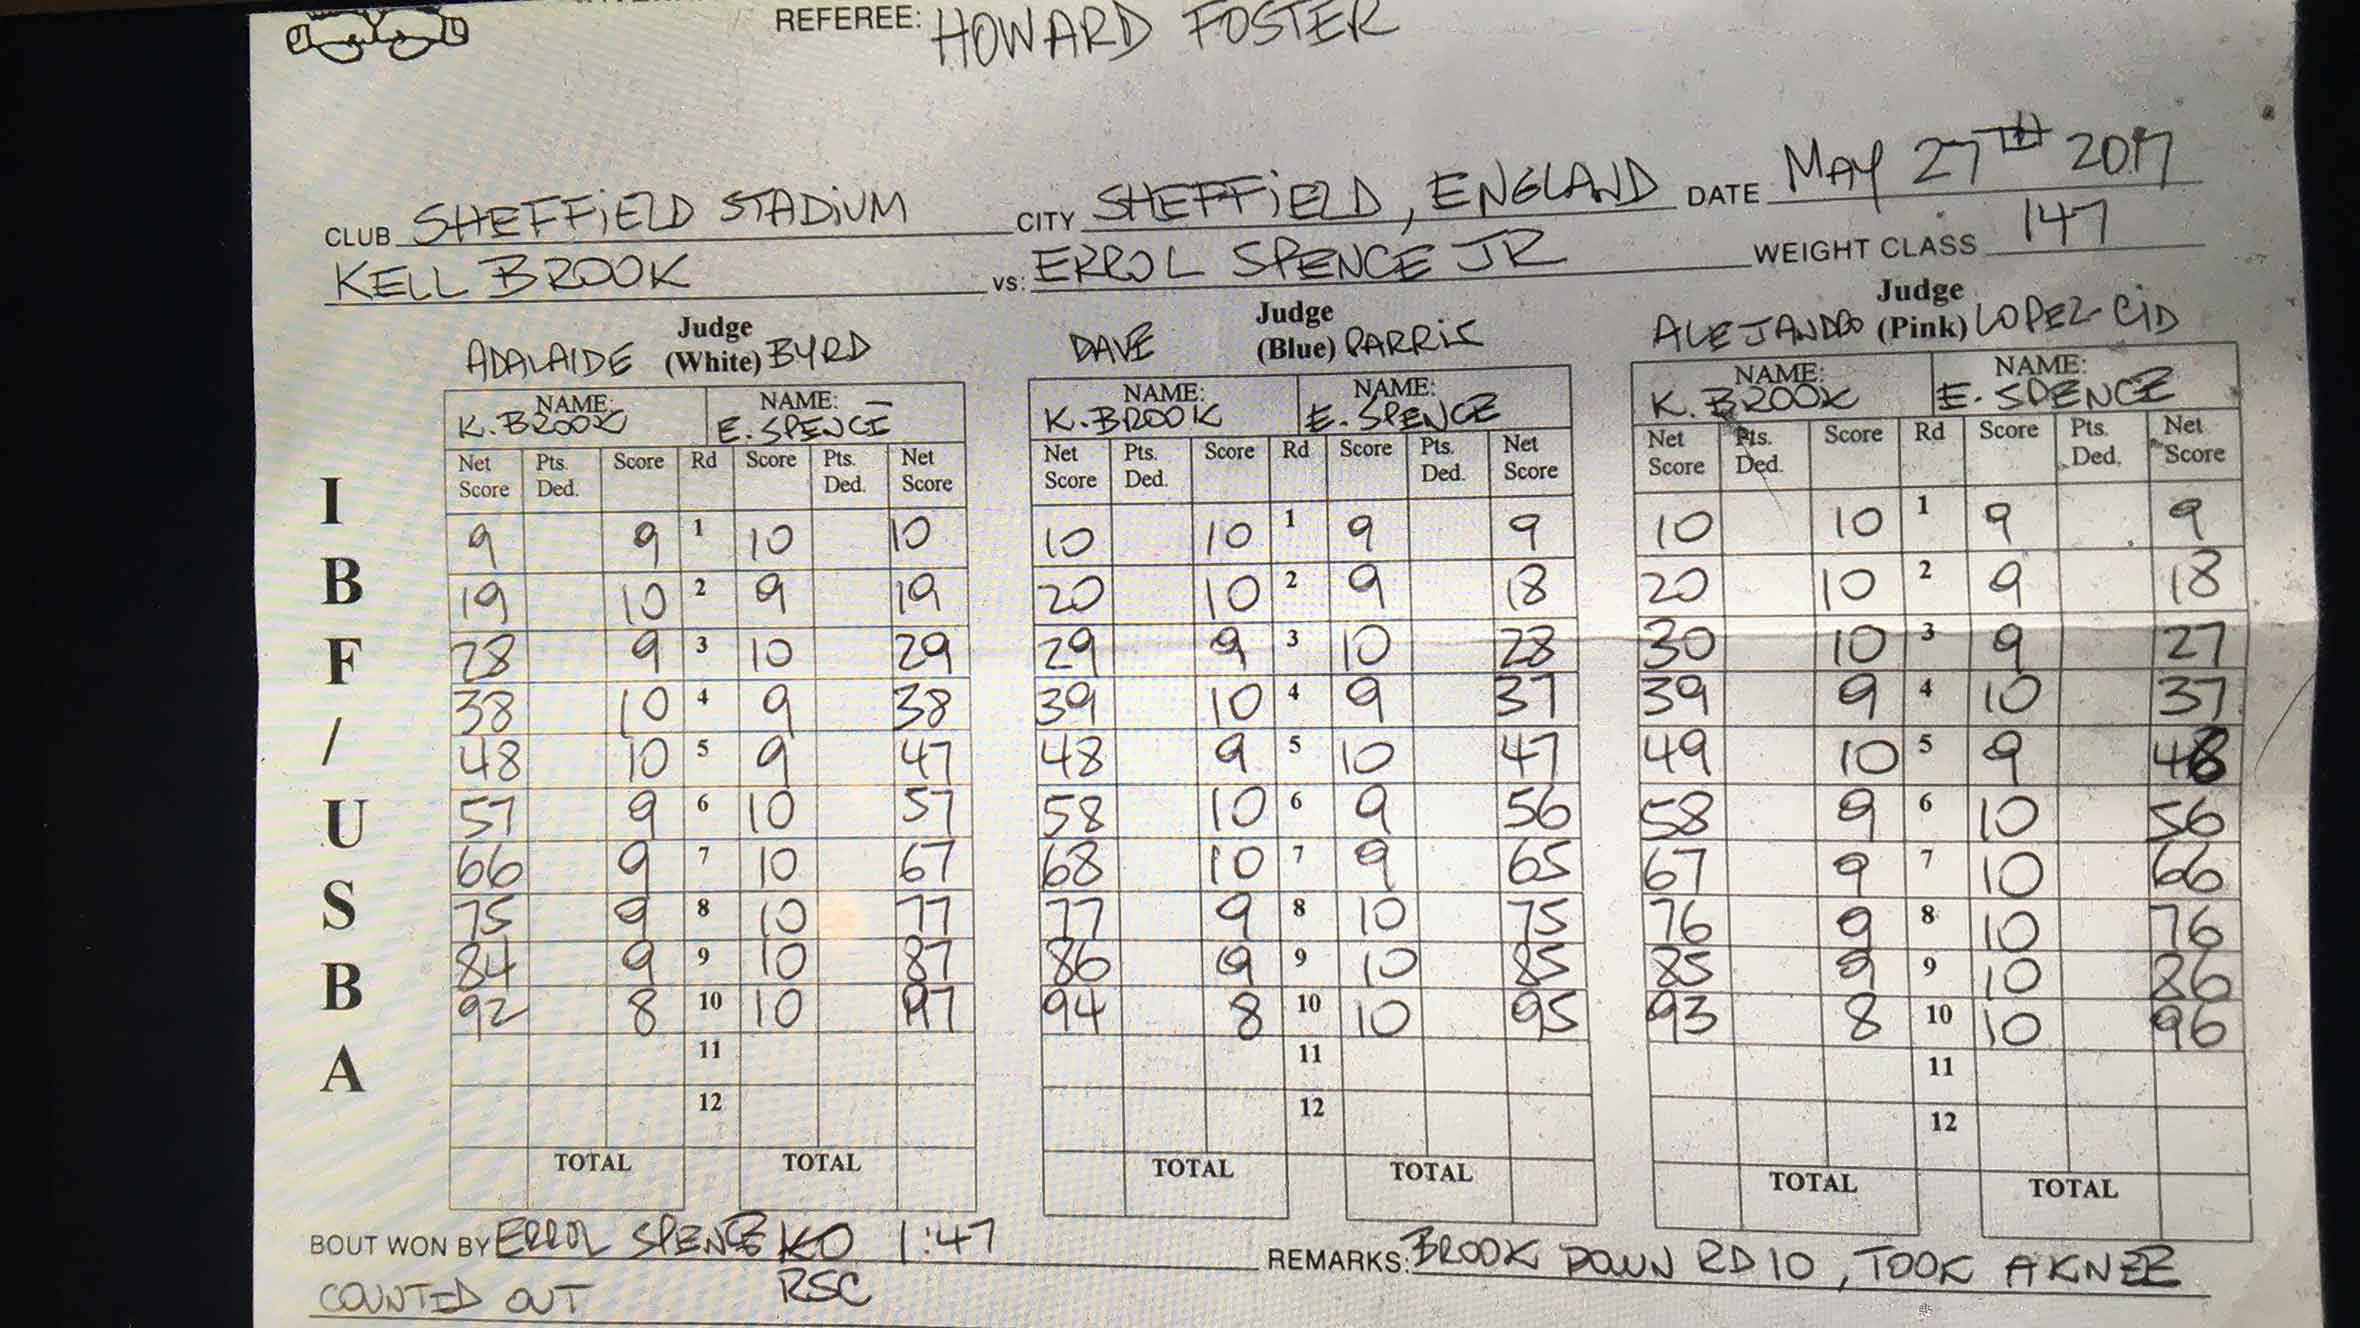 REFEREE: HOWARD FOSTER
CLUB SHEFFIELD STADIUM CITY SHEFFIELD, ENGLAND DATE MAY 27TH 2017
KELL BROOK vs: ERROL SPENCE JR WEIGHT CLASS 147
Judge Judge Judge
ADALAIDE (White) BYRD DAVE (Blue) PARRIS ALEJANDRO (Pink) LOPEZ-CID
NAME: NAME: NAME: NAME: NAME: NAME:
K. BROOK E. SPENCE K. BROOK E. SPENCE K. BROOK E. SPENCE
Net Pts. Score Rd Score Pts. Net Net Pts. Score Rd Score Pts. Net Net Pts. Score Rd Score Pts. Net
Score Ded. Ded. Score Score Ded. Ded. Score Score Ded. Ded. Score
9 9 1 10 10 10 10 1 9 9 10 10 1 9 9
19 10 2 9 19 20 10 2 9 18 20 10 2 9 18
28 9 3 10 29 29 9 3 10 28 30 10 3 9 27
38 10 4 9 38 39 10 4 9 37 39 9 4 10 37
48 10 5 9 47 48 9 5 10 47 49 10 5 9
57 9 6 10 57 58 10 6 9 56 58 9 6 10 56
66 9 7 10 67 68 10 7 9 65 67 9 7 10 66
75 9 8 10 77 77 9 8 10 75 76 9 8 10 76
84 9 9 10 87 86 9 9 10 85 85 9 9 10 86
92 8 10 10 97 94 8 10 10 95 93 8 10 10 96
11 11 11
12 12 12
TOTAL TOTAL TOTAL TOTAL TOTAL TOTAL
IBF/USBA
BOUT WON BY ERROL SPENCE KO 1:47 REMARKS: BROOK DOWN RD 10, TOOK A KNEE
COUNTED OUT RSC